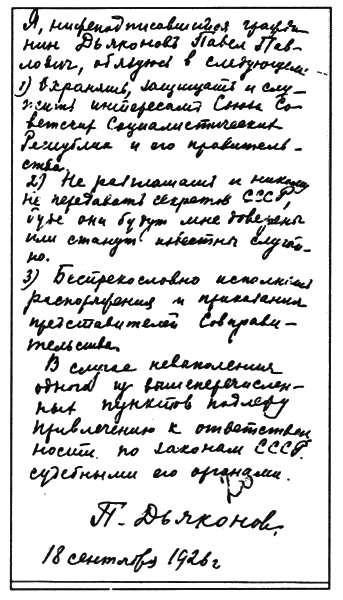 Я, нижеподписавшийся гражда-
нин Дьяконовъ Павел Пав-
лович, обязуюсь в следующем:
1) Охранять, защищать и слу-
жить интересам Союза Со-
ветских Социалистических
Республик и его правитель-
ства.
2) Не разглашать и никому
не передавать секретов СССР,
буде они будут мне доверены
или станут известны случай-
но.
3) Беспрекословно исполнять
распоряжения и приказания
представителей Совправи-
тельства.
В случае невыполнения
одного из вышеперечислен-
ных пунктов подлежу
привлечению к ответствен
ности по законам СССР
судебными его органами.
П. Дьяконов.
18 сентября 1926 г